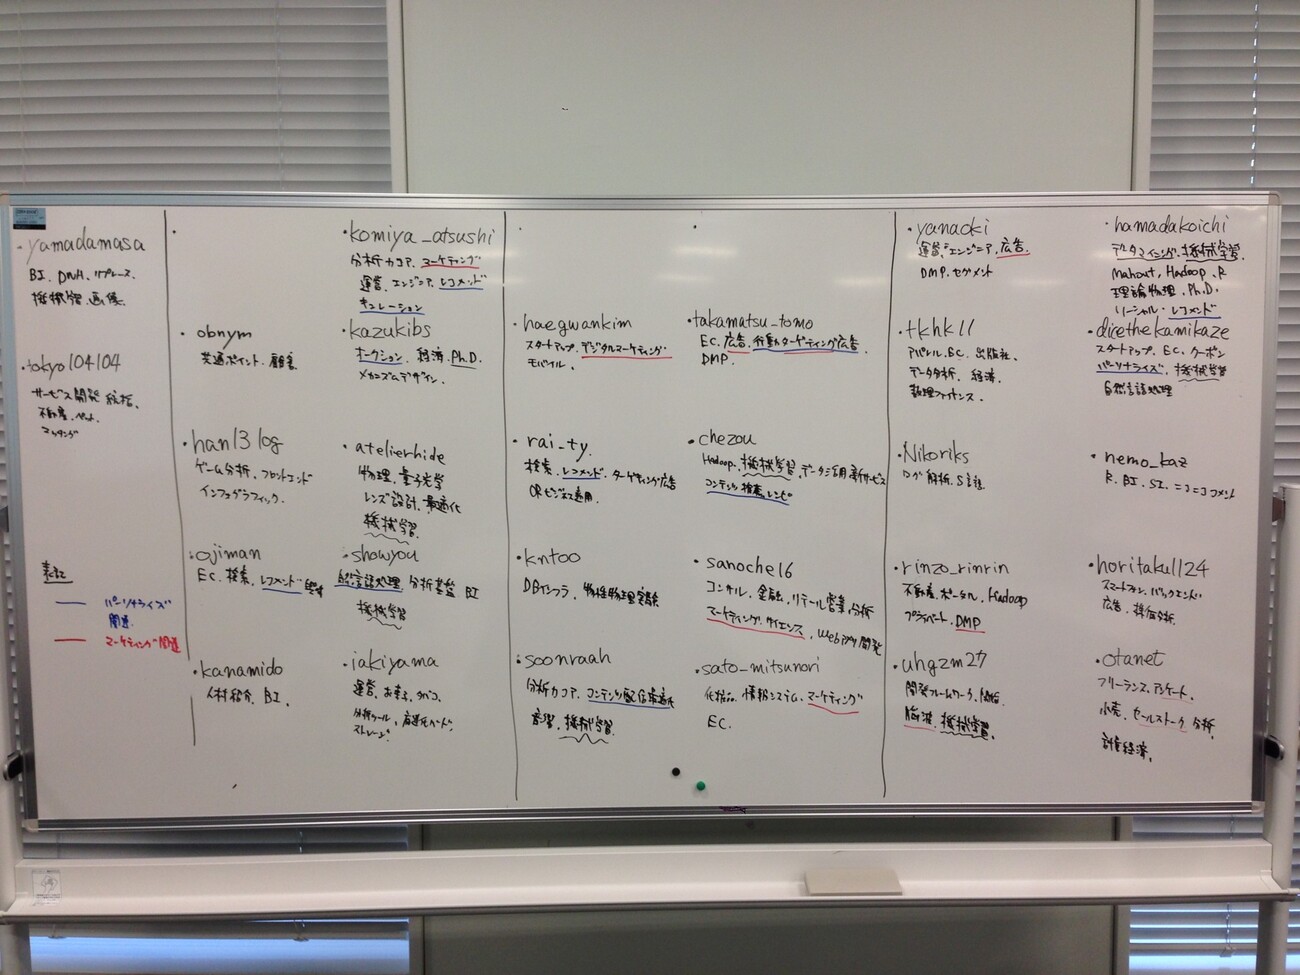 ・yamadamasa
BI、DWH、リプレース、
機械学習、画像
・tokyo104104
サービス開発統括、
不動産、ペット、
マッチング
表記
パーソナライズ
関連
マーケティング関連
・
・obnym
共通ポイント、顧客
・han13log
ゲーム分析、フロントエンド
インフォグラフィック、
・ojiman
EC、検索、レコメンド
・kanamido
人材紹介、BI、
・komiya_atsushi
分析カコア、マーケティング
運営、エンジニア、レコメンド
キュレーション
・kazukibs
オークション、経済、Ph.D.
メカニズムデザイン、
・atelierhide
物理、量子光学
レンズ設計、最適化
機械学習
・showyou
自然言語処理、分析基盤、BI
機械学習
・iakiyama
運営、お茶、タバコ、
分析ツール、高速化ハード、
ストレージ
・
・haegwankim
スタートアップ、デジタルマーケティング
モバイル、
・rai_ty
検索、レコメンド、ターゲティング広告
ORビジネス適用
・kntoo
DBインフラ、物性物理実験
・soonraah
分析カコア、コンテンツ配信最適化
音響、機械学習
・
・takamatsu_tomo
EC、広告、行動ターゲティング広告
DMP、
・chezou
Hadoop、機械学習、データ活用新サービス
コンテンツ推薦、レシピ
・sanoche16
コンサル、金融、リテール営業、分析
マーケティングサイエンス、webアプリ開発
・sato_mitsunori
化粧品、情報システム、マーケティング
EC、
・yanaoki
運営、エンジニア、広告
DMP、セグメント
・tkhk11
アパレル、EC、出版社、
データ分析、経済、
数理ファイナンス、
・Nikoriks
ログ解析、S言語
・rinzo_rinrin
不動産、ポータル、Hadoop
プライベート、DMP
・uhgzm27
開発フレームワーク、
脳波、機械学習、
・hamadakoichi
データマイニング、機械学習、
mahout、Hadoop、R
理論物理、Ph.D.
ソーシャル、レコメンド
・direthekamikaze
スタートアップ、EC、クーポン
パーソナライズ、機械学習
自然言語処理
・nemo_kaz
R、BI、SI、ニコニココメント
・horitaku1124
スマートフォン、バックエンド
広告、操作分析、
・otanet
フリーランス、アンケート、
小売、セールストーク分析、
計量経済、